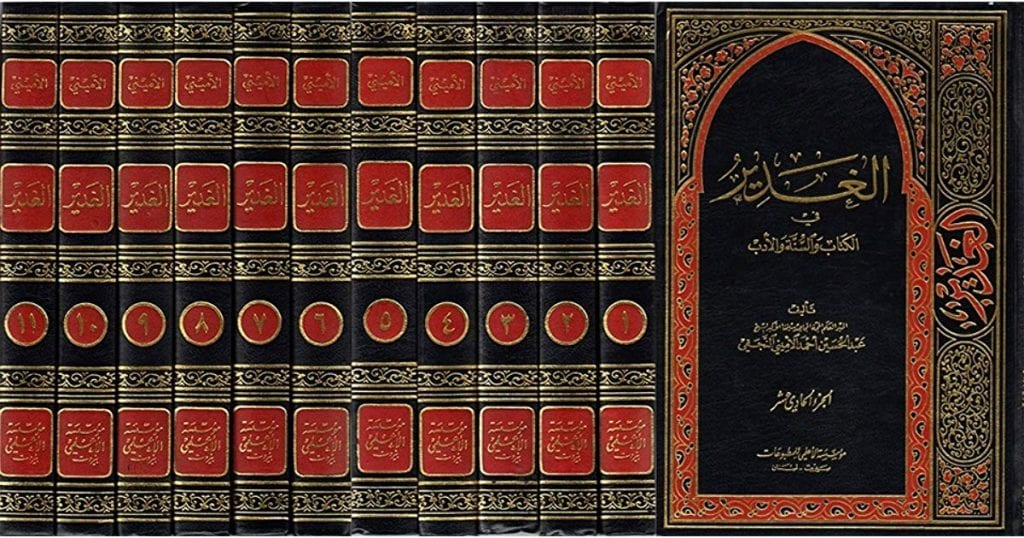 الغدير
في
الكتاب والسنة والأدب
تأليف
عبد الحسين أحمد الأميني النجفي
الجزء الحادي عشر
مؤسسة الأعلمي للمطبوعات
بيروت - لبنان
الغدير
الأميني الأميني الأميني الأميني الأميني الأميني الأميني الأميني الأميني الأميني الأميني
الغدير الغدير الغدير الغدير الغدير الغدير الغدير الغدير الغدير الغدير الغدير
١ ٢ ٣ ٤ ٥ ٦ ٧ ٨ ٩ ١٠ ١١
مؤسسة مؤسسة مؤسسة مؤسسة مؤسسة مؤسسة مؤسسة مؤسسة مؤسسة مؤسسة مؤسسة
الأعلمي الأعلمي الأعلمي الأعلمي الأعلمي الأعلمي الأعلمي الأعلمي الأعلمي الأعلمي الأعلمي
بيروت بيروت بيروت بيروت بيروت بيروت بيروت بيروت بيروت بيروت بيروت